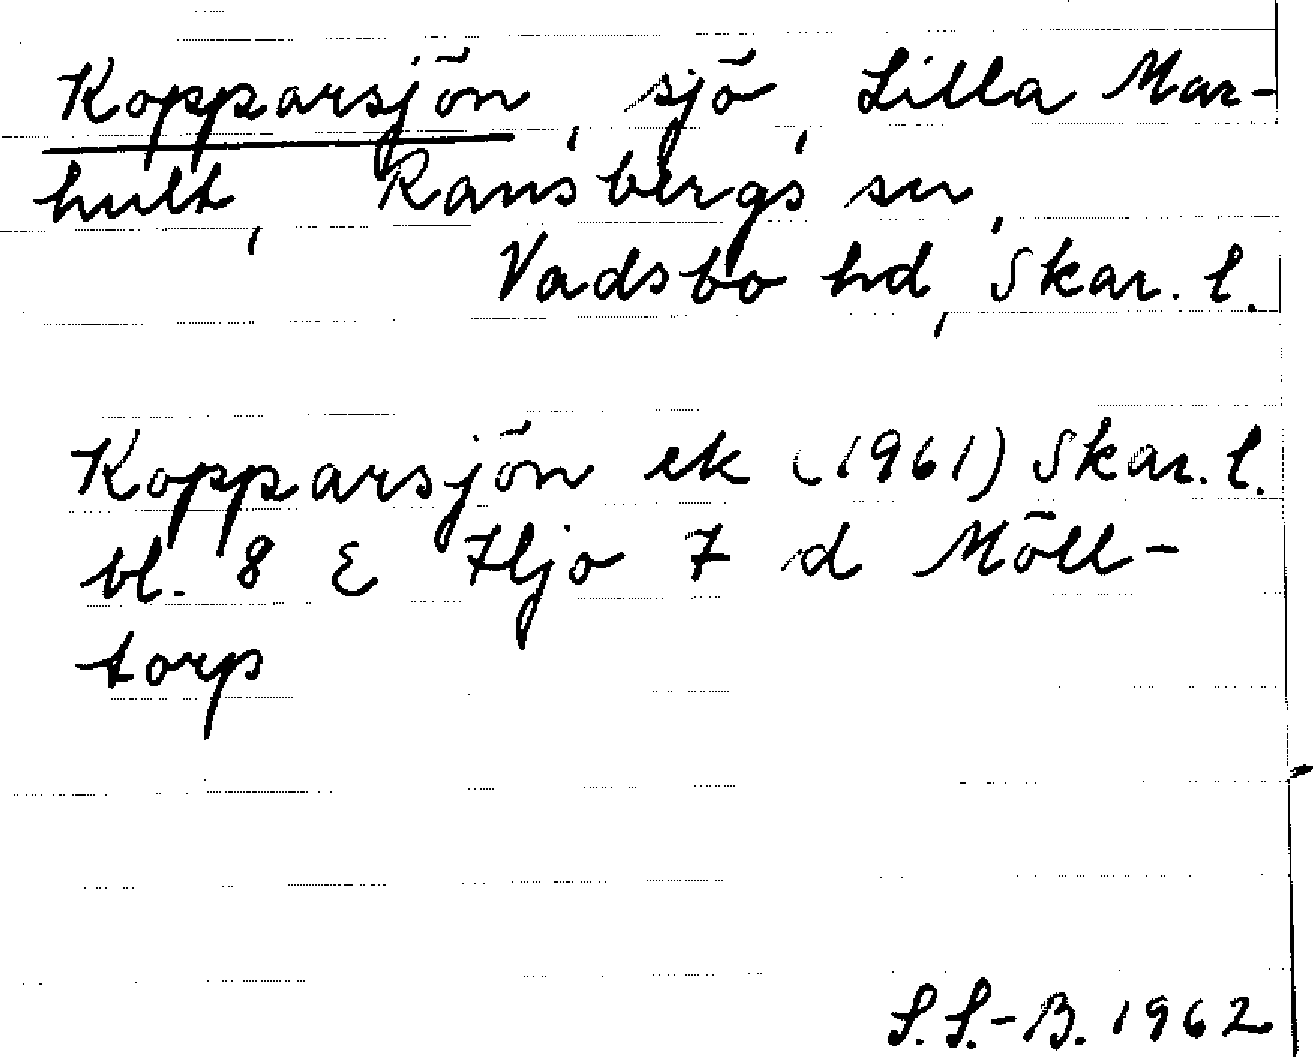 Kopparsjön, sjö, Lilla Mar-
hult, Ransbergs sn,
Vadsbo hd, Skar. l.
Kopparsjön ek (1961) Skar. l.
bl. 8 E Hjo 7 d Möll-
torp
S.S.-B. 1962